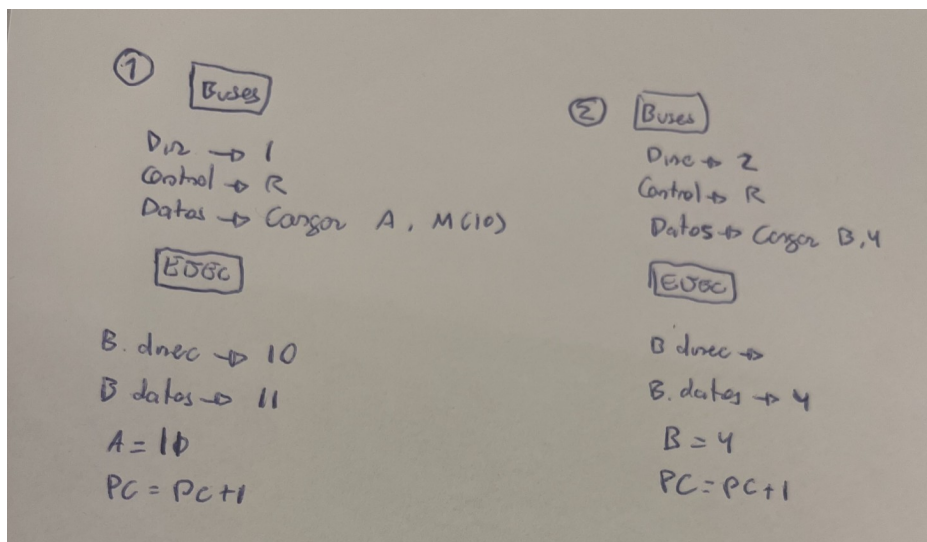 1
Buses
Dir → 1
Control → R
Datos → Cargar A, M(10)
EJEC
B. direc → 10
B datos → 11
A =
PC = PC+1
2
Buses
Direc → 2
Control → R
Datos → Cargar B,4
EJEC
B direc →
B. datos → 4
B = 4
PC = PC+1